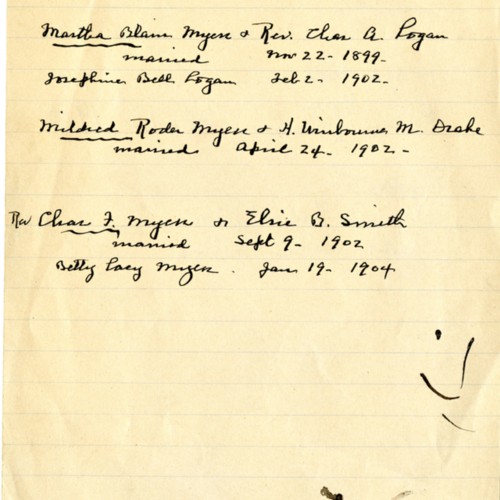 Martha Blain Myers & Rev. Chas A. Logan
married Nov 22 - 1899 -
Josephine Bell Logan Feb 2 - 1902 -
Mildred Roda Myers & H. Winbourne M. Drake
married April 24 - 1902 -
Rev Chas F. Myers & Elsie B. Smith
married Sept 9 - 1902
Betty Lacy Myers. Jan 19 - 1904